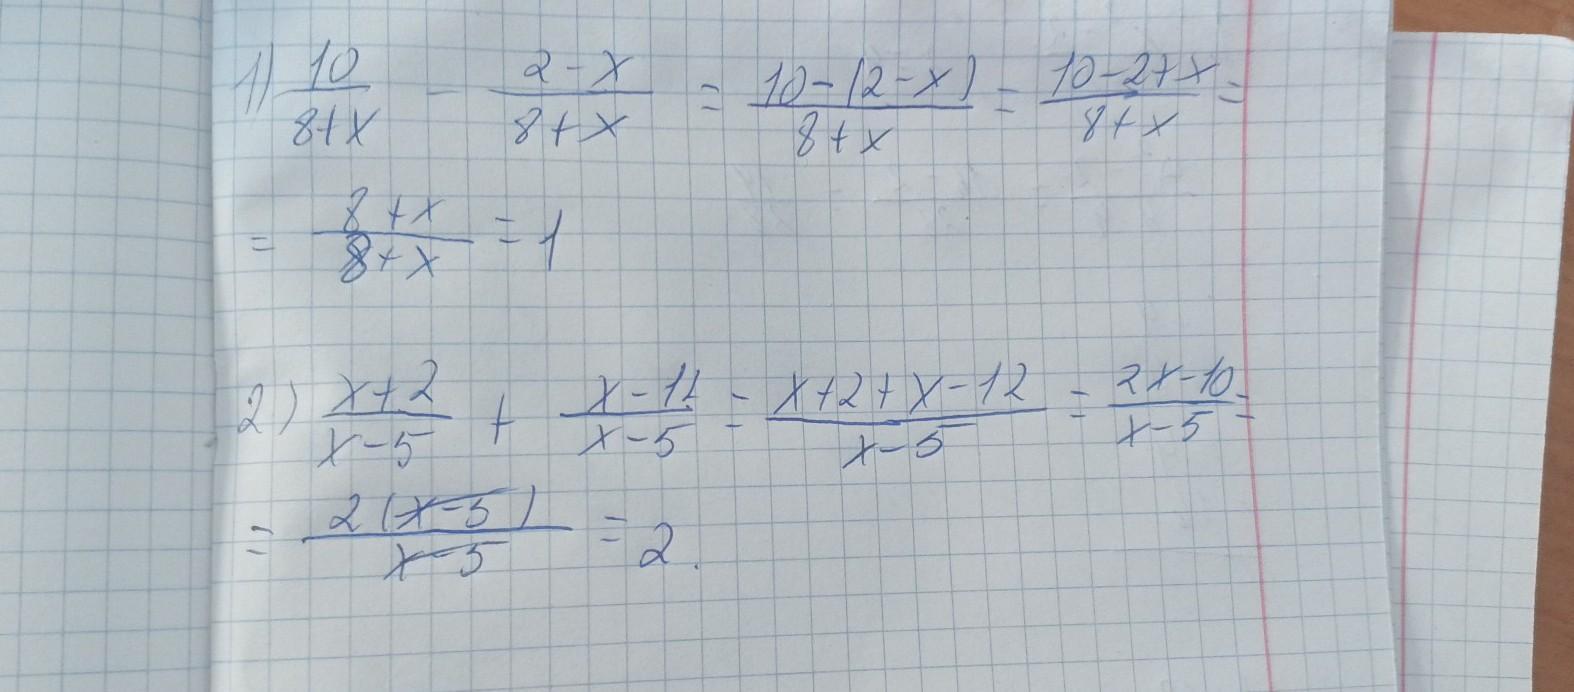 1) 10/(8+x) - (2-x)/(8+x) = (10-(2-x))/(8+x) = (10-2+x)/(8+x) =
= (8+x)/(8+x) = 1
2) (x+2)/(x-5) + (x-12)/(x-5) = (x+2+x-12)/(x-5) = (2x-10)/(x-5) =
= 2(x-5)/(x-5) = 2.